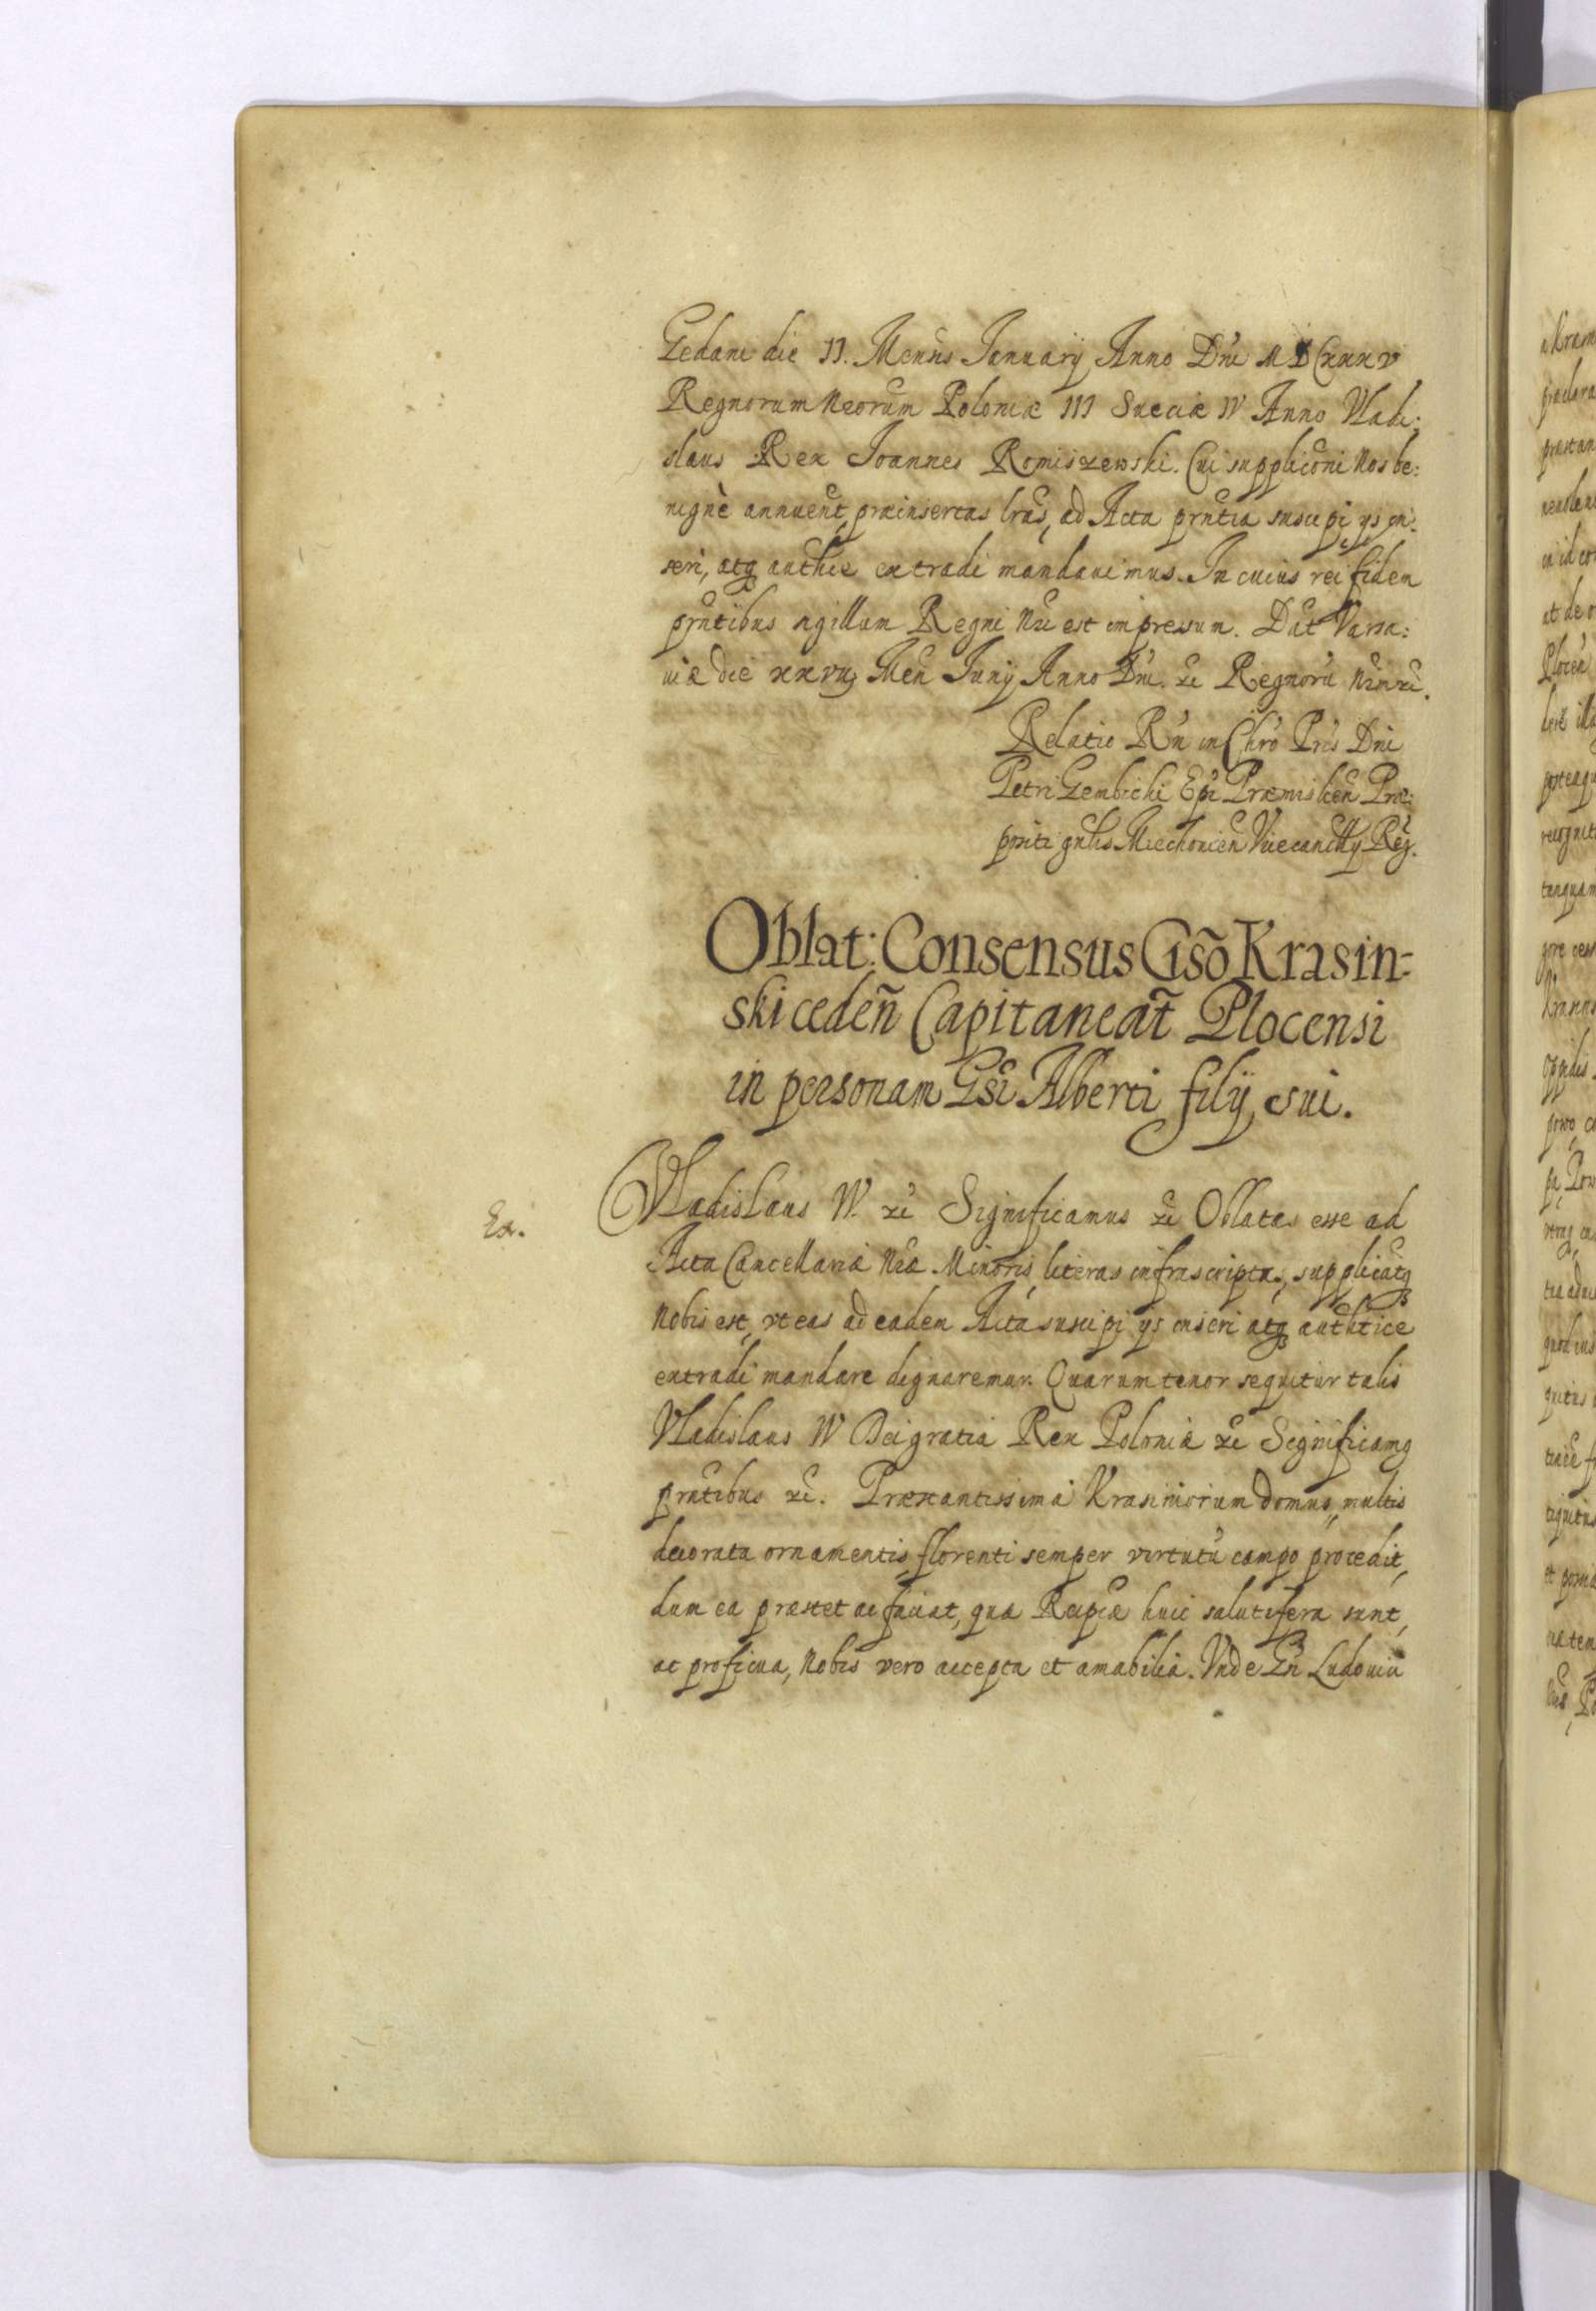 Gedani die II. Mensis Januarij Anno Dni MDCxxxv
Regnorum nrorum Poloniæ III Sueciæ IV Anno Vladi:
slaus Rex Joannes Romiszewski. Cui supplicōni Nos be:
nignè annuent, præinsertas lras, ad Acta prntia suscipi ys in:
seri, atq authce extradi mandauimus. In cuius rei fidem
prntibus sigillum Regni Nri est impressum. Dat Varsa:
uiæ die xxvij Men Junij Anno Dni. zc Regnorū nrorū zc.
Relatio Rn in Chro Pris Dni
Petri Gembicki Epi Præmislien Præ:
positi gnlis Miechouien Vicecancllrij Reg.
Oblat: Consensus Gsō Krasin:
ski ceden Capitaneat Plocensi
in personam Gsi Alberti filij sui.
Ex.
Vladislaus IV. zc Significamus zc Oblatas esse ad
Acta Cancellariæ Nræ Minoris, literas infrascriptas, supplicatq
Nobis est, vt eas ad eadem Acta suscipi ys inseri atq authtice
extradi mandare dignaremur. Quarum tenor sequitur talis
Vladislaus IV Dei gratia Rex Poloniæ zc Significamq
prntibus zc. Præstantissima Krasiniorum domus, multis
decorata ornamentis, florenti semper virtutū campo procedit,
dum ea præstet ac faciat, quæ Reipcæ huic salutifera sunt,
ac proficua, Nobis vero accepta et amabilia. Vnde Gn Ludouici